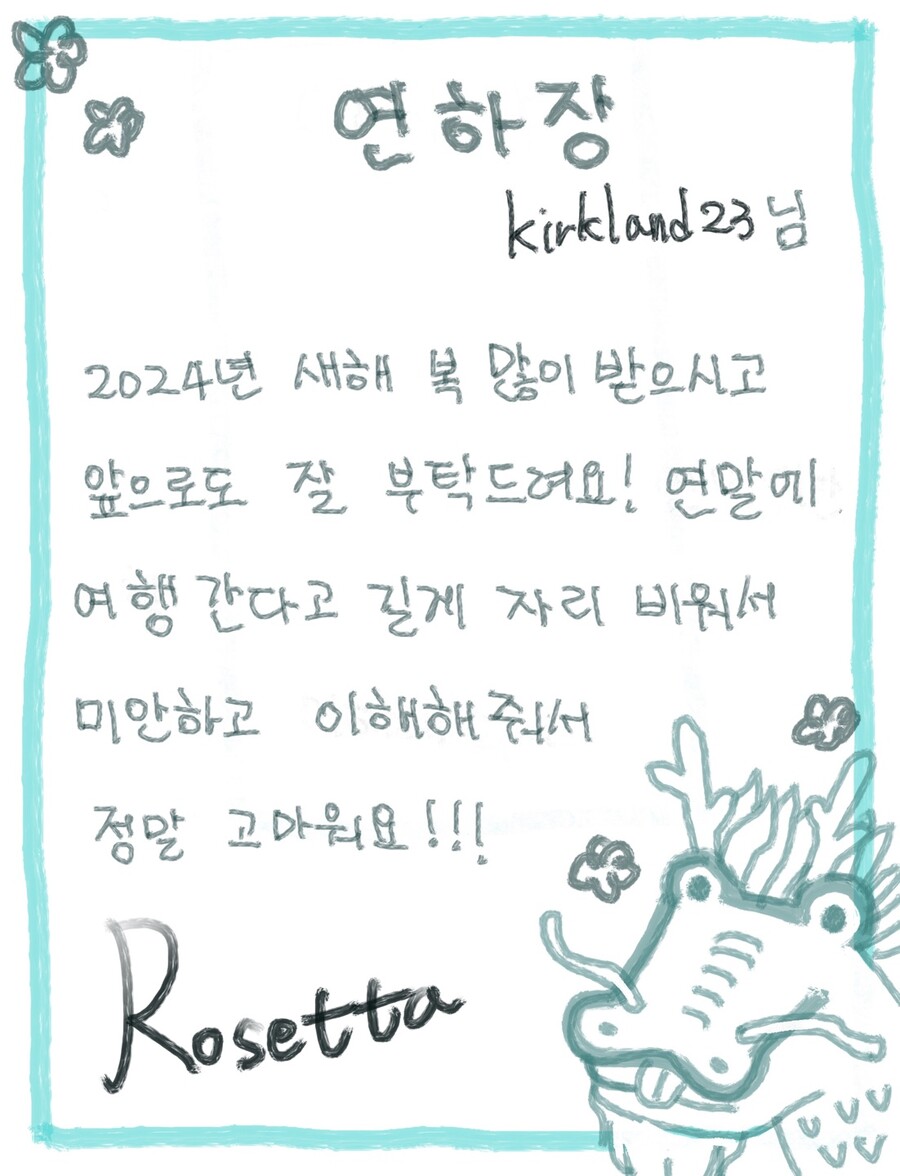 연하장
kirkland23님
2024년 새해 복 많이 받으시고
앞으로도 잘 부탁드려요! 연말에
여행 간다고 길게 자리 비워서
미안하고 이해해줘서
정말 고마워요!!!
Rosetta